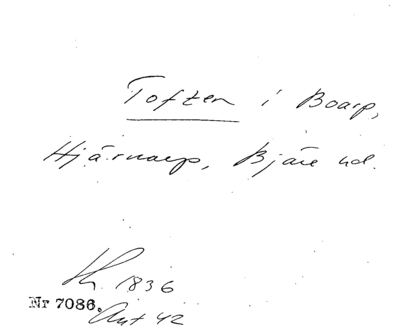 Toften i Boarp,
Hjärnarp, Bjäre hd.
1836
Nr 7086.
Ant 42